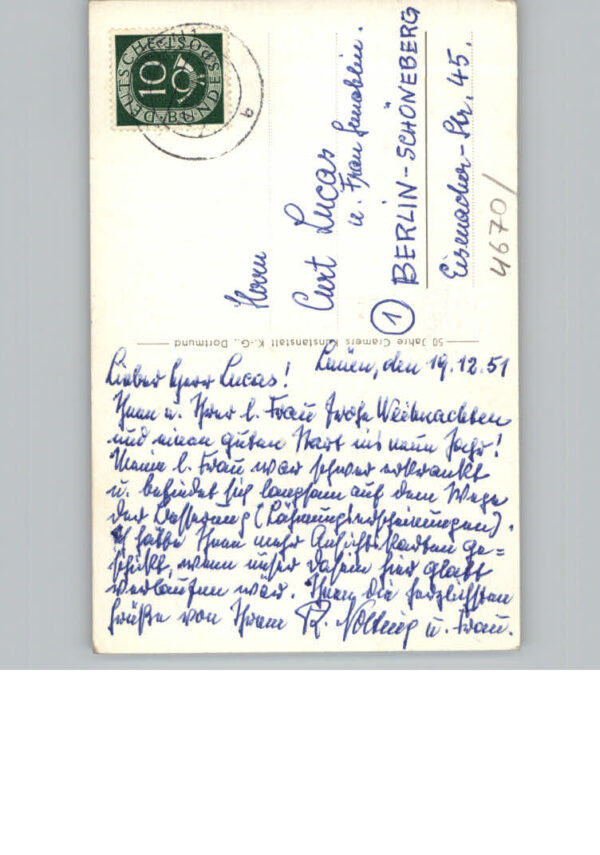 DEUTSCHE BUNDESPOST
10
b
Herrn
Curt Lucas
u. Frau Gemahlin.
1 BERLIN-SCHÖNEBERG
Eisenacher-Str. 45.
4670/
50 Jahre Cramers Kunstanstalt K.-G., Dortmund
Lünen, den 19.12.51
Lieber Herr Lucas!
Ihnen u. Ihrer l. Frau frohe Weihnachten
und einen guten Start ins neue Jahr!
Meine l. Frau war schwer erkrankt
u. befindet sich langsam auf dem Wege
der Besserung (Lähmungserscheinungen).
Ich hätte Ihnen mehr Ansichtskarten ge=
schickt, wenn unser Dasein hier glatt
verlaufen wär. Ihnen die herzlichsten
Grüße von Ihrem R. Nolting u. Frau.